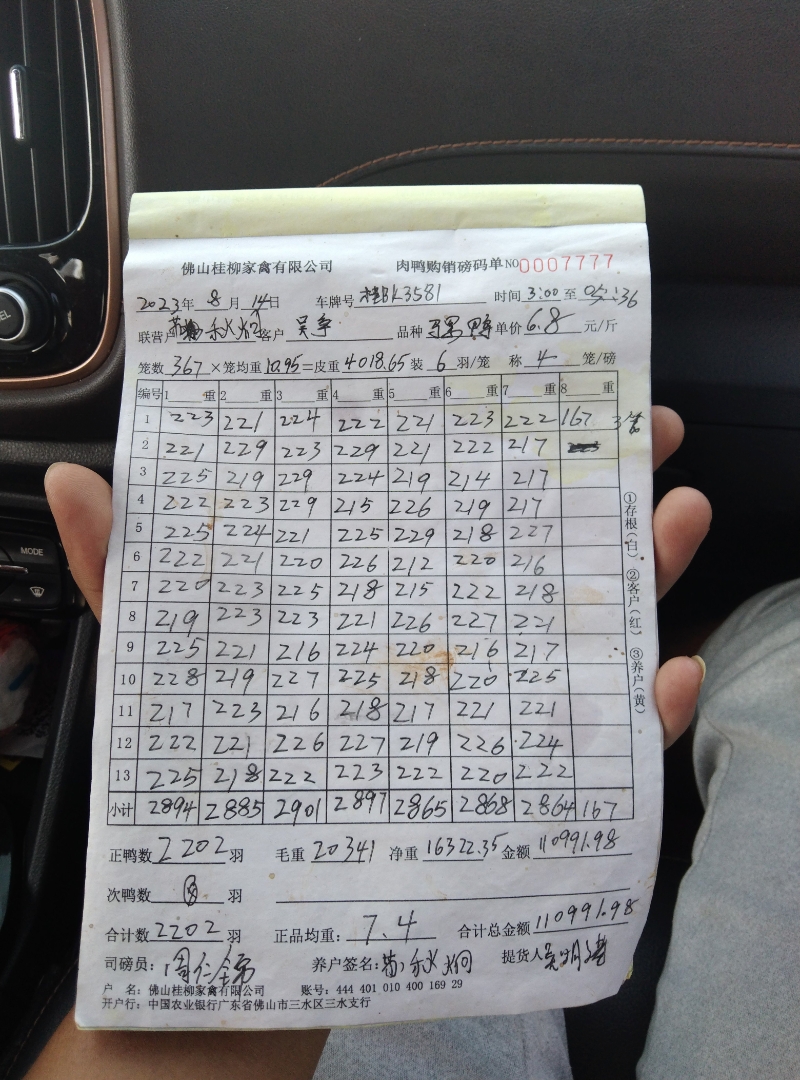 佛山桂柳家禽有限公司 肉鸭购销磅码单 NO 0007777
2023年 8 月 14日 车牌号 桂BK3581 时间 3:00 至
联营户 客户 吴争 品种 单价 6.8 元/斤
笼数 367 × 笼均重 10.95 = 皮重 4018.65 装 6 羽/笼 称 4 笼/磅
编号 1 重 2 重 3 重 4 重 5 重 6 重 7 重 8 重
1 223 221 224 222 221 223 222 167 3笼
2 221 229 223 229 221 222 217
3 225 219 229 224 219 214 217
4 222 223 229 215 226 219 217
5 225 224 221 225 229 218 227
6 222 221 220 226 212 220 216
7 220 223 225 218 215 222 218
8 219 223 223 221 226 227 221
9 225 221 216 224 220 216 217
10 228 219 227 225 218 220 225
11 217 223 216 218 217 221 221
12 222 221 226 227 219 226 224
13 225 218 222 223 222 220 222
小计 2894 2885 2901 2897 2865 2868 2864 167
正鸭数 2202 羽 毛重 20341 净重 16322.35 金额 110991.98
次鸭数 羽
合计数 2202 羽 正品均重: 7.4 合计总金额 110991.98
司磅员: 养户签名: 提货人
户 名: 佛山桂柳家禽有限公司 账号: 444 401 010 400 169 29
开户行: 中国农业银行广东省佛山市三水区三水支行
①存根(白) ②客户(红) ③养户(黄)
MODE